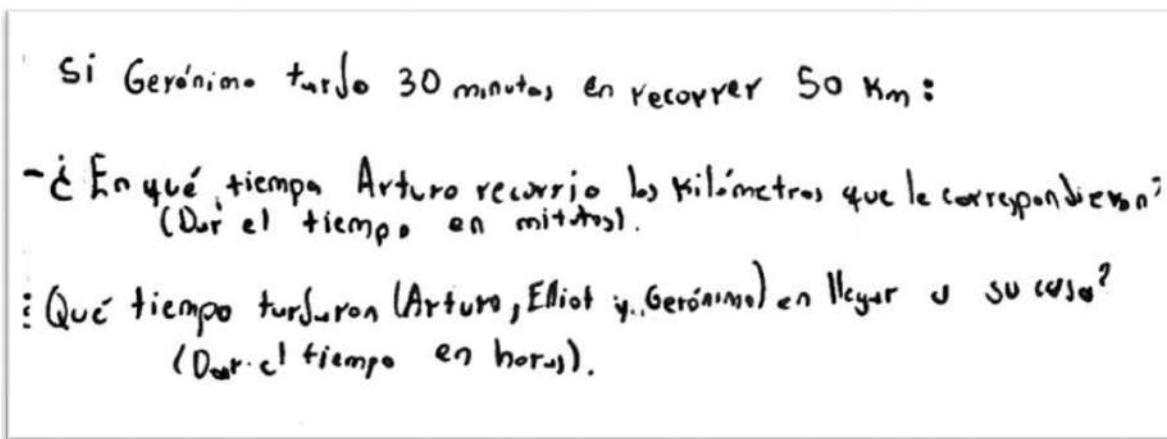 Si Gerónimo tardo 30 minutos en recorrer 50 Km:
- ¿En qué tiempo Arturo recorrio los kilómetros que le correspondieron?
(Dar el tiempo en mitutos).
¿Qué tiempo tardaron (Arturo, Elliot y Gerónimo) en llegar a su casa?
(Dar el tiempo en horas).